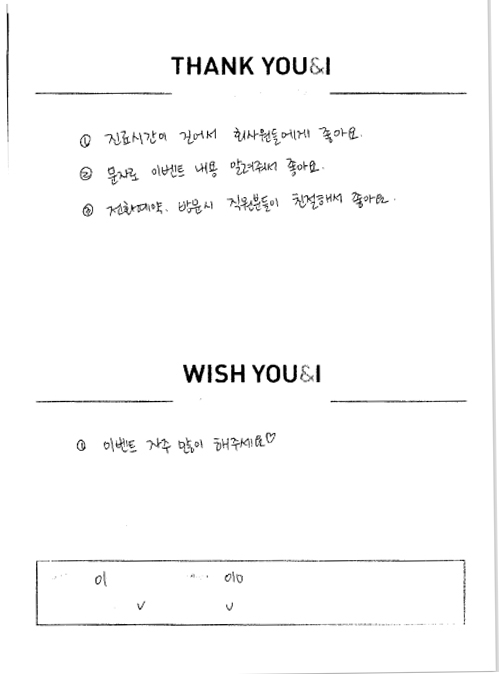 THANK YOU&I
① 진료시간이 길어서 회사원들에게 좋아요.
② 문자로 이벤트 내용 알려줘서 좋아요.
③ 전화예약, 방문시 직원분들이 친절해서 좋아요.
WISH YOU&I
① 이벤트 자주 많이 해주세요♡
이
V V